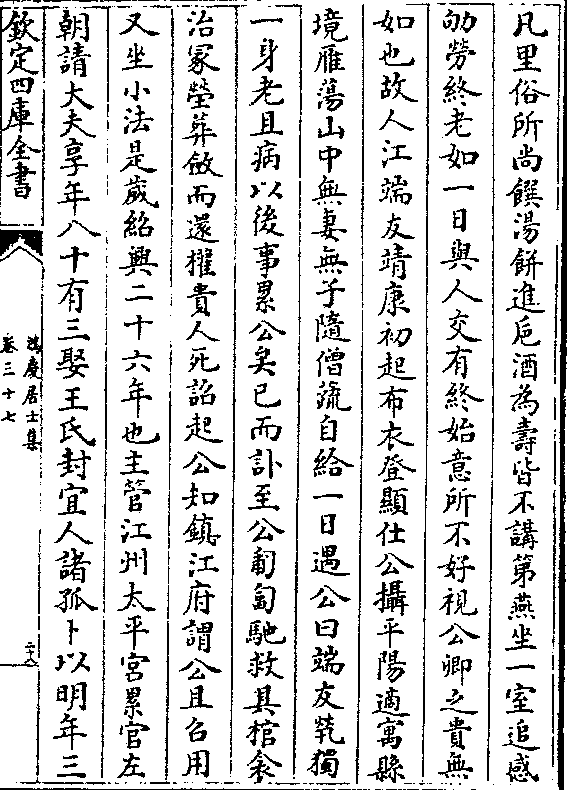 凡里俗所尚饌湯餅進巵酒為壽皆不講第燕坐一室追感
劬勞終老如一日與人交有終始意所不好視公卿之貴無
如也故人江端友靖康初起布衣登顯仕公攝平陽適寓縣
境雁蕩山中無妻無子隨僧蔬自給一日遇公曰端友煢獨
一身老且病以後事累公矣已而訃至公匍匐馳救具棺衾
治冢塋葬斂而還擢貴人死詔起公知鎮江府謂公且召用
又坐小法是歲紹興二十六年也主管江州太平宮累官左
朝請大夫享年八十有三娶王氏封宜人諸孤卜以明年三
欽定四庫全書
鴻慶居士集
卷三十七
二十八